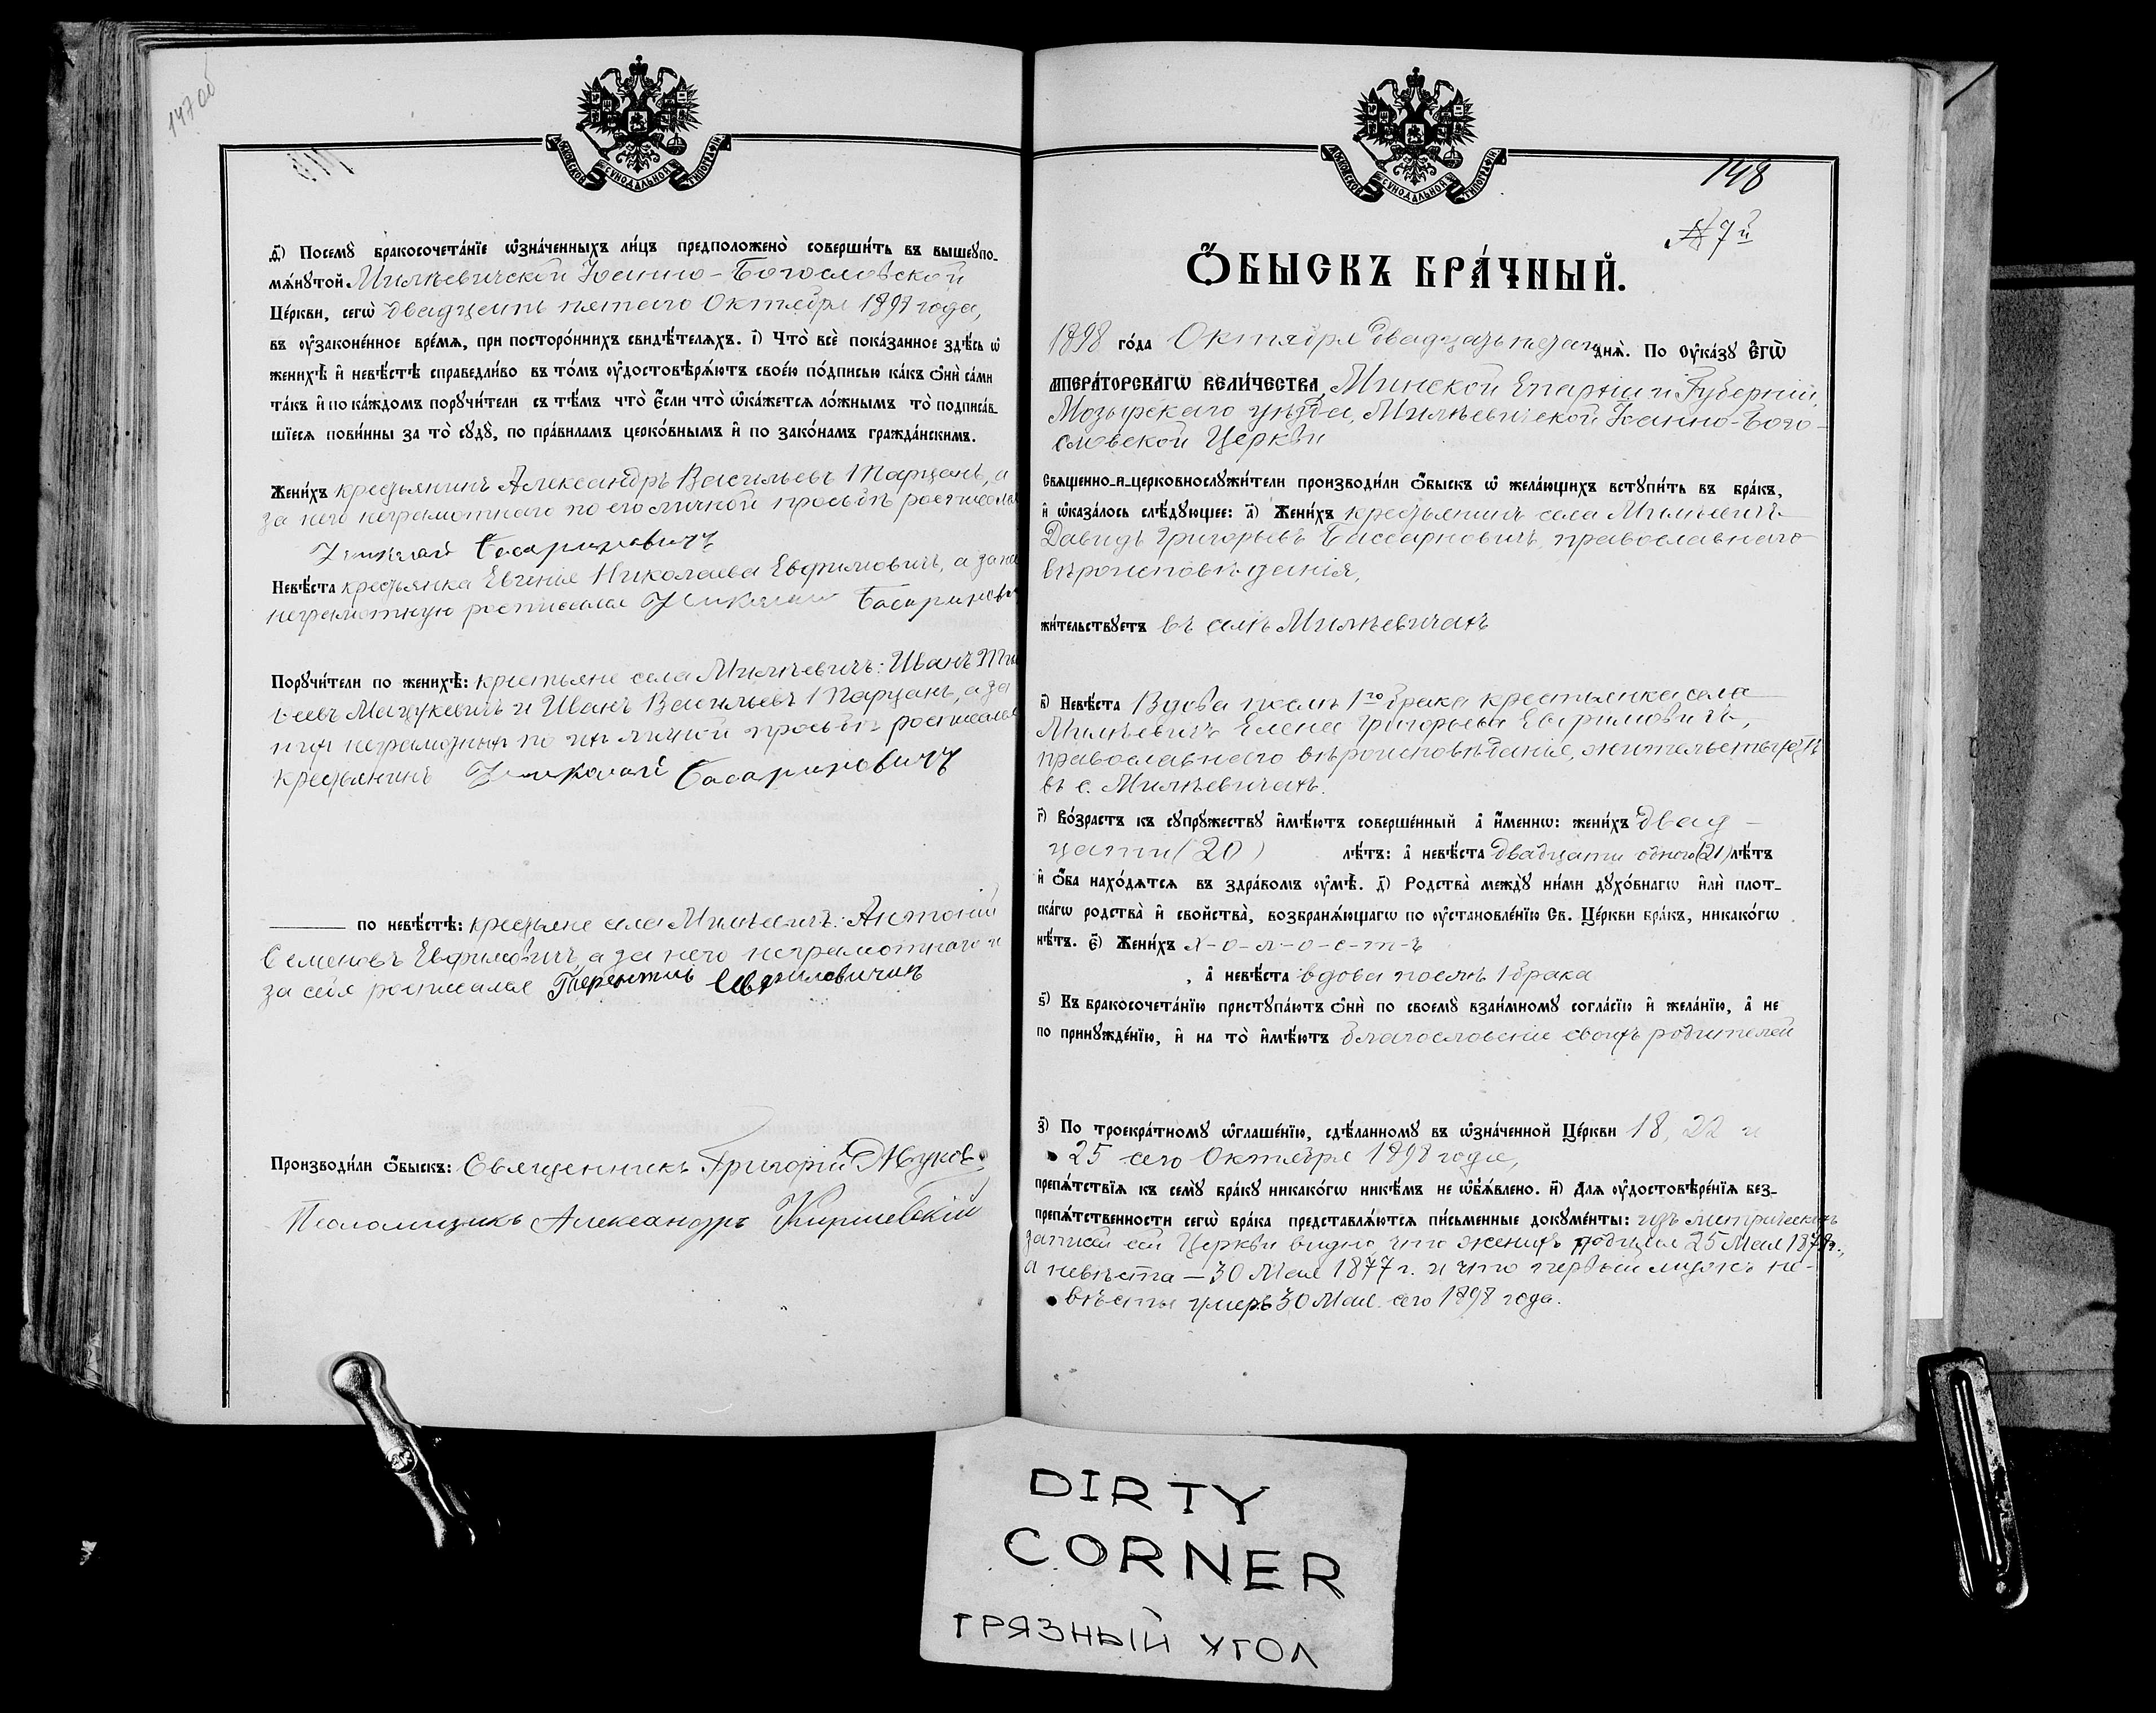 147 об
МОСКОВСКОЙ СѴНОДАЛЬНОЙ ТИПОГРАФІИ
ѳ҃) Посемꙋ̀ бракосочета́нїе ѡ҆зна́ченныхъ ли́цъ предположено̀ соверши́ть въ вышеꙋпо-
мѧ́нꙋтой Милѣевичской Іоанно-Богословской
Це́ркви, сегѡ̀ двадцать пятаго Октября 1898 года,
въ ᲂу҆законе́нное вре́мѧ, при посторо́ннихъ свидѣ́телѧхъ. і҃) Что̀ всѐ пока́занное здѣ́сь ѡ҆
женихѣ̀ и҆ невѣ́стѣ справедли́во въ то́мъ ᲂу҆достовѣрѧ́ютъ свое́ю по́дписью ка́къ ѻ҆нѝ са́ми
та́къ и҆ по ка́ждомъ порꙋчи́тели съ тѣ́мъ что̀ є҆́сли что̀ ѡ҆ка́жетсѧ ло́жнымъ то̀ подписа́в-
шїесѧ пови́нны за то̀ сꙋдꙋ̀, по пра́виламъ церко́внымъ и҆ по зако́намъ гражда́нскимъ.
Жени́хъ крестьянинъ Александръ Васильевъ Парцанъ, а
за него неграмотнаго по его личной просьбѣ росписался
Николай Басариновичъ
Невѣ́ста крестьянка Евгенія Николаева Евфимовичъ, а за нее
неграмотную росписался Николай Басаринови
Порꙋчи́тели по женихѣ̀: крестьяне села Милѣевичъ: Иванъ
Мацукевичъ и Иванъ Васильевъ Парцанъ, а за
нихъ неграмотныхъ по ихъ личной просьбѣ росписался
крестьянинъ Николай Басариновичъ
по невѣ́стѣ: крестьяне села Милѣевичъ: Антоній
Семеновъ Евфимовичъ, а за него неграмотнаго и
за себя росписался Терентій
Производи́ли ѻ҆́быскъ: Священникъ Григорій Жуков
Псаломщикъ Александръ
148
МОСКОВСКОЙ СѴНОДАЛЬНОЙ ТИПОГРАФІИ
№ 7й
Ѻ҆́БЫСКЪ БРА́ЧНЫЙ.
1898 го́да Октября двадцать пятаго днѧ̀. По ᲂу҆ка́зꙋ Є҆гѡ̀
И҆МПЕРА́ТОРСКАГѠ ВЕЛИ́ЧЕСТВА, Минской Епархіи и Губерніи,
Мозырскаго уѣзда, Милѣевичской Іоанно-Бого-
словской Церкви
Свѧщенно-и-церковнослꙋжи́тели производи́ли ѻ҆́быскъ ѡ҆ жела́ющихъ встꙋпи́ть въ бра́къ,
и҆ ѡ҆каза́лось слѣ́дꙋющее: а҃) Жени́хъ крестьянинъ села Милѣевичъ
Давидъ Григорьевъ Бассарновичъ, православнаго
вѣроисповѣданія,
жи́тельствꙋетъ въ селѣ Милѣевичахъ
в҃) Невѣ́ста Вдова послѣ 1го брака крестьянка села
Милѣевичъ Елена Григорьева Евфимовичъ,
православнаго вѣроисповѣданія, жительствуетъ
въ с. Милѣевичахъ.
г҃) Во́зрастъ къ сꙋпрꙋ́жествꙋ и҆мѣ́ютъ соверше́нный а҆ и҆́меннѡ: жени́хъ двад-
цати (20) лѣ́тъ: а҆ невѣ́ста двадцати одного (21) лѣ́тъ
и҆ ѻ҆́ба нахо́дѧтсѧ въ здра́вомъ ᲂу҆мѣ̀. д҃) Родства̀ междꙋ̀ ни́ми дꙋхо́внагѡ и҆лѝ плот-
ска́гѡ родства̀ и҆ сво́йства̀, возбранѧ́ющагѡ по ᲂу҆становле́нїю Св. Це́ркви бра́къ, никако́гѡ
нѣ́тъ. є҃) Жени́хъ х-о-л-о-с-т-ъ
, а҆ невѣ́ста вдова послѣ 1 брака
ѕ҃) Къ бракосочета́нїю пристꙋпа́ютъ ѻ҆нѝ по своемꙋ̀ взаи́мномꙋ согла́сїю и҆ жела́нїю, а҆ не
по принꙋжде́нїю, и҆ на то̀ и҆мѣ́ютъ благословеніе своихъ родителей
з҃) По троекра́тномꙋ ѡ҆глаше́нїю, сдѣ́ланномꙋ въ ѡ҆зна́ченной Це́ркви 18, 22 и
25 сего Октября 1898 года,
препѧ́тствїѧ къ семꙋ̀ бра́кꙋ никако́гѡ никѣ́мъ не ѡ҆б̾ѧ́влено. и҃) Длѧ ᲂу҆достовѣре́нїѧ без-
препѧ́тственности сегѡ̀ бра́ка представлѧ́ютсѧ пи́сьменные докꙋме́нты: изъ метрическихъ
записей сей Церкви видно, что женихъ родился 25 Мая 1878 г.,
а невѣста — 30 Мая 1877 г. и что первый мужъ не-
вѣсты умеръ 30 Мая сего 1898 года.
DIRTY
CORNER
ГРЯЗНЫЙ УГОЛ